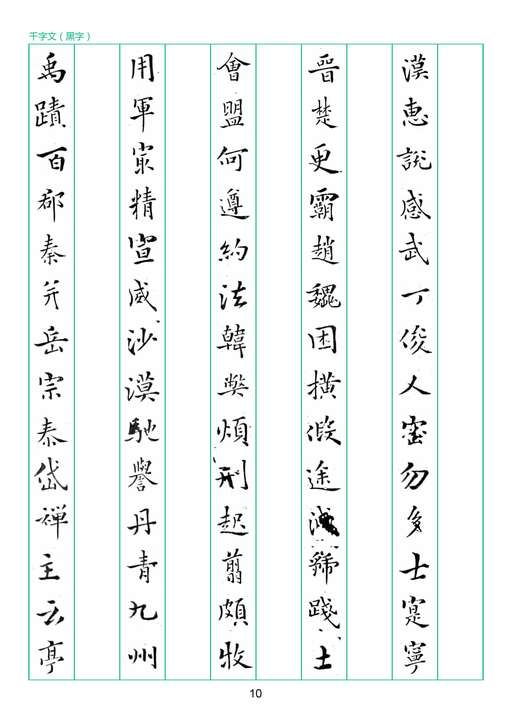 千字文（黑字）
漢惠說感武丁俊乂密勿多士寔寧
晉楚更霸趙魏困橫假途滅虢踐土
會盟何遵約法韓弊煩刑起翦頗牧
用軍最精宣威沙漠馳譽丹青九州
禹蹟百郡秦并岳宗泰岱禪主云亭
10